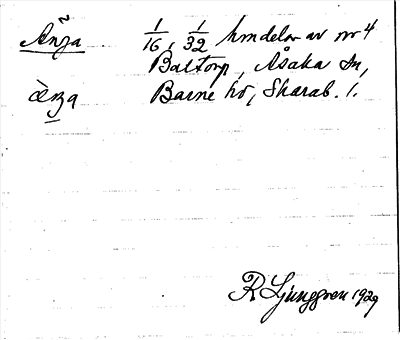 Änga 1/16, 1/32 hmdelar av nr 4
Baltorp, Åsaka sn,
ànga Barne hd, Skarab. l.
R Ljunggren 1929